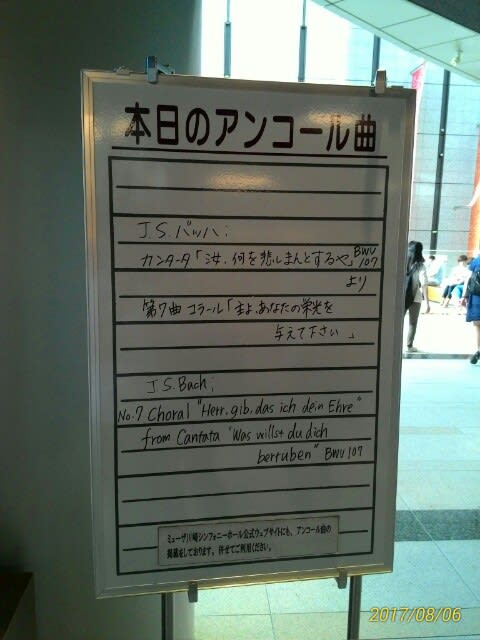 本日のアンコール曲
J.S.バッハ;
カンタータ「汝、何を悲しまんとするや」BWV 107
より
第7曲 コラール「主よ、あなたの栄光を
与えて下さい」
J.S.Bach;
No.7 Choral "Herr, gib, das ich dein Ehre"
from Cantata "Was willst du dich
bertuben" BWV 107
ミューザ川崎シンフォニーホール公式ウェブサイトにも、アンコール曲の
掲載をしております。併せてご利用ください。
2017/08/06